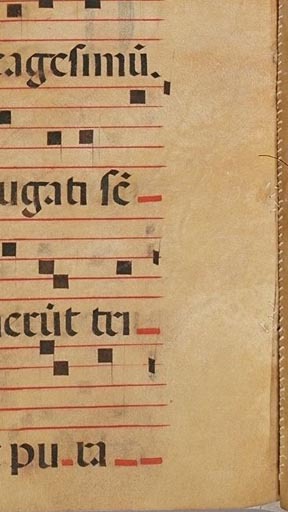 agesimū.
ugati sc̄
erūt tri
pu ra